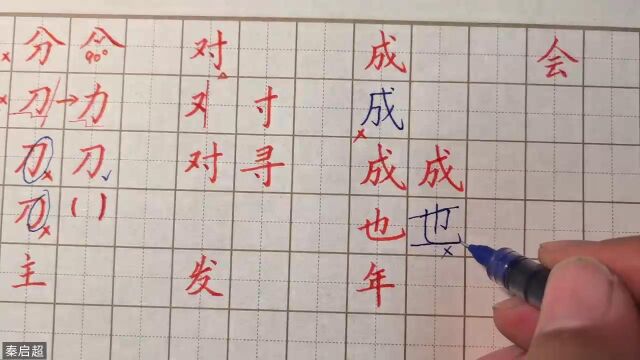 分 90° 对 成 会
刀 → 力 又 寸 成
刀 刀 对 寻 成 成
刀 ( ) 也 也
主 发 年
秦启超